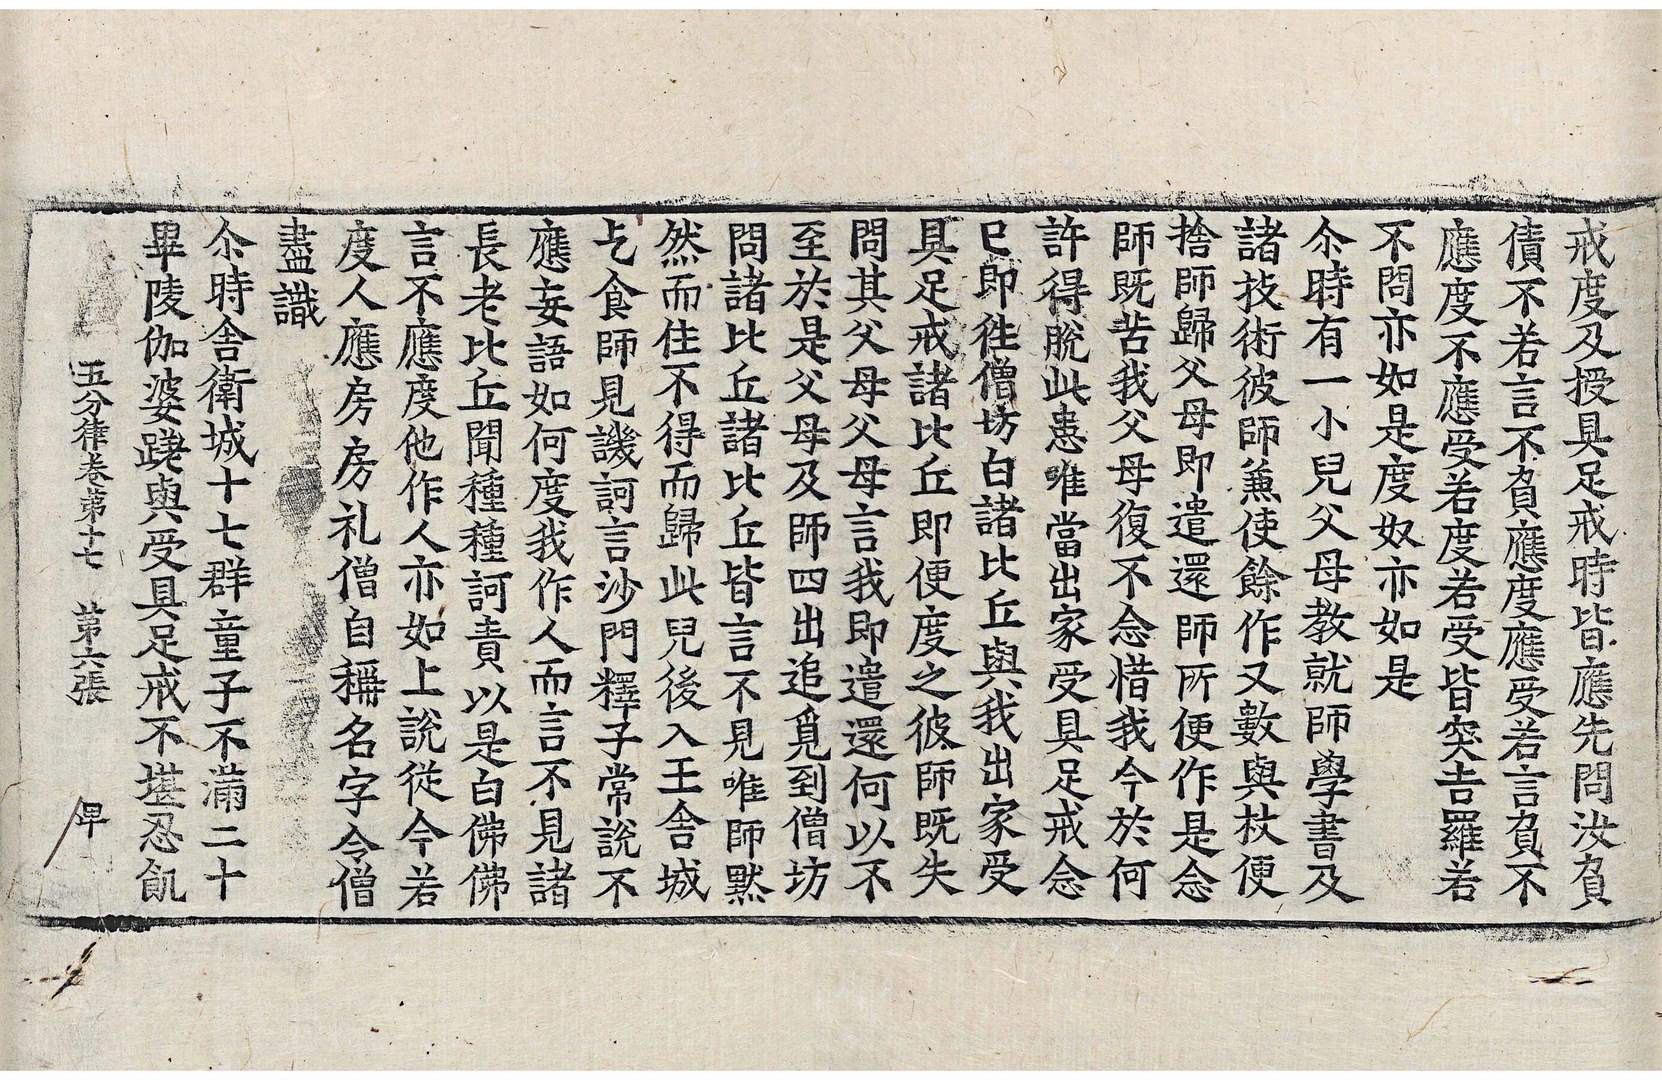 戒度及授具足戒時皆應先問汝負
債不若言不負應度應受若言負不
應度不應受若度若受皆突吉羅若
不問亦如是度奴亦如是
尒時有一小兒父母教就師學書及
諸技術彼師兼使餘作又數與杖便
捨師歸父母即遣還師所便作是念
師既苦我父母復不念惜我今於何
許得脫此恚唯當出家受具足戒念
已即徃僧坊白諸比丘與我出家受
具足戒諸比丘即便度之彼師既失
問其父母父母言我即遣還何以不
至於是父母及師四出追覓到僧坊
問諸比丘諸比丘皆言不見唯師黙
然而住不得而歸此兒後入王舍城
乞食師見譏訶言沙門釋子常說不
應妄語如何度我作人而言不見諸
長老比丘聞種種訶責以是白佛佛
言不應度他作人亦如上說從今若
度人應房房礼僧自稱名字令僧
盡識
尒時舍衛城十七群童子不滿二十
畢陵伽婆蹉與受具足戒不堪忍飢
五分律卷第十七　第六張　卑